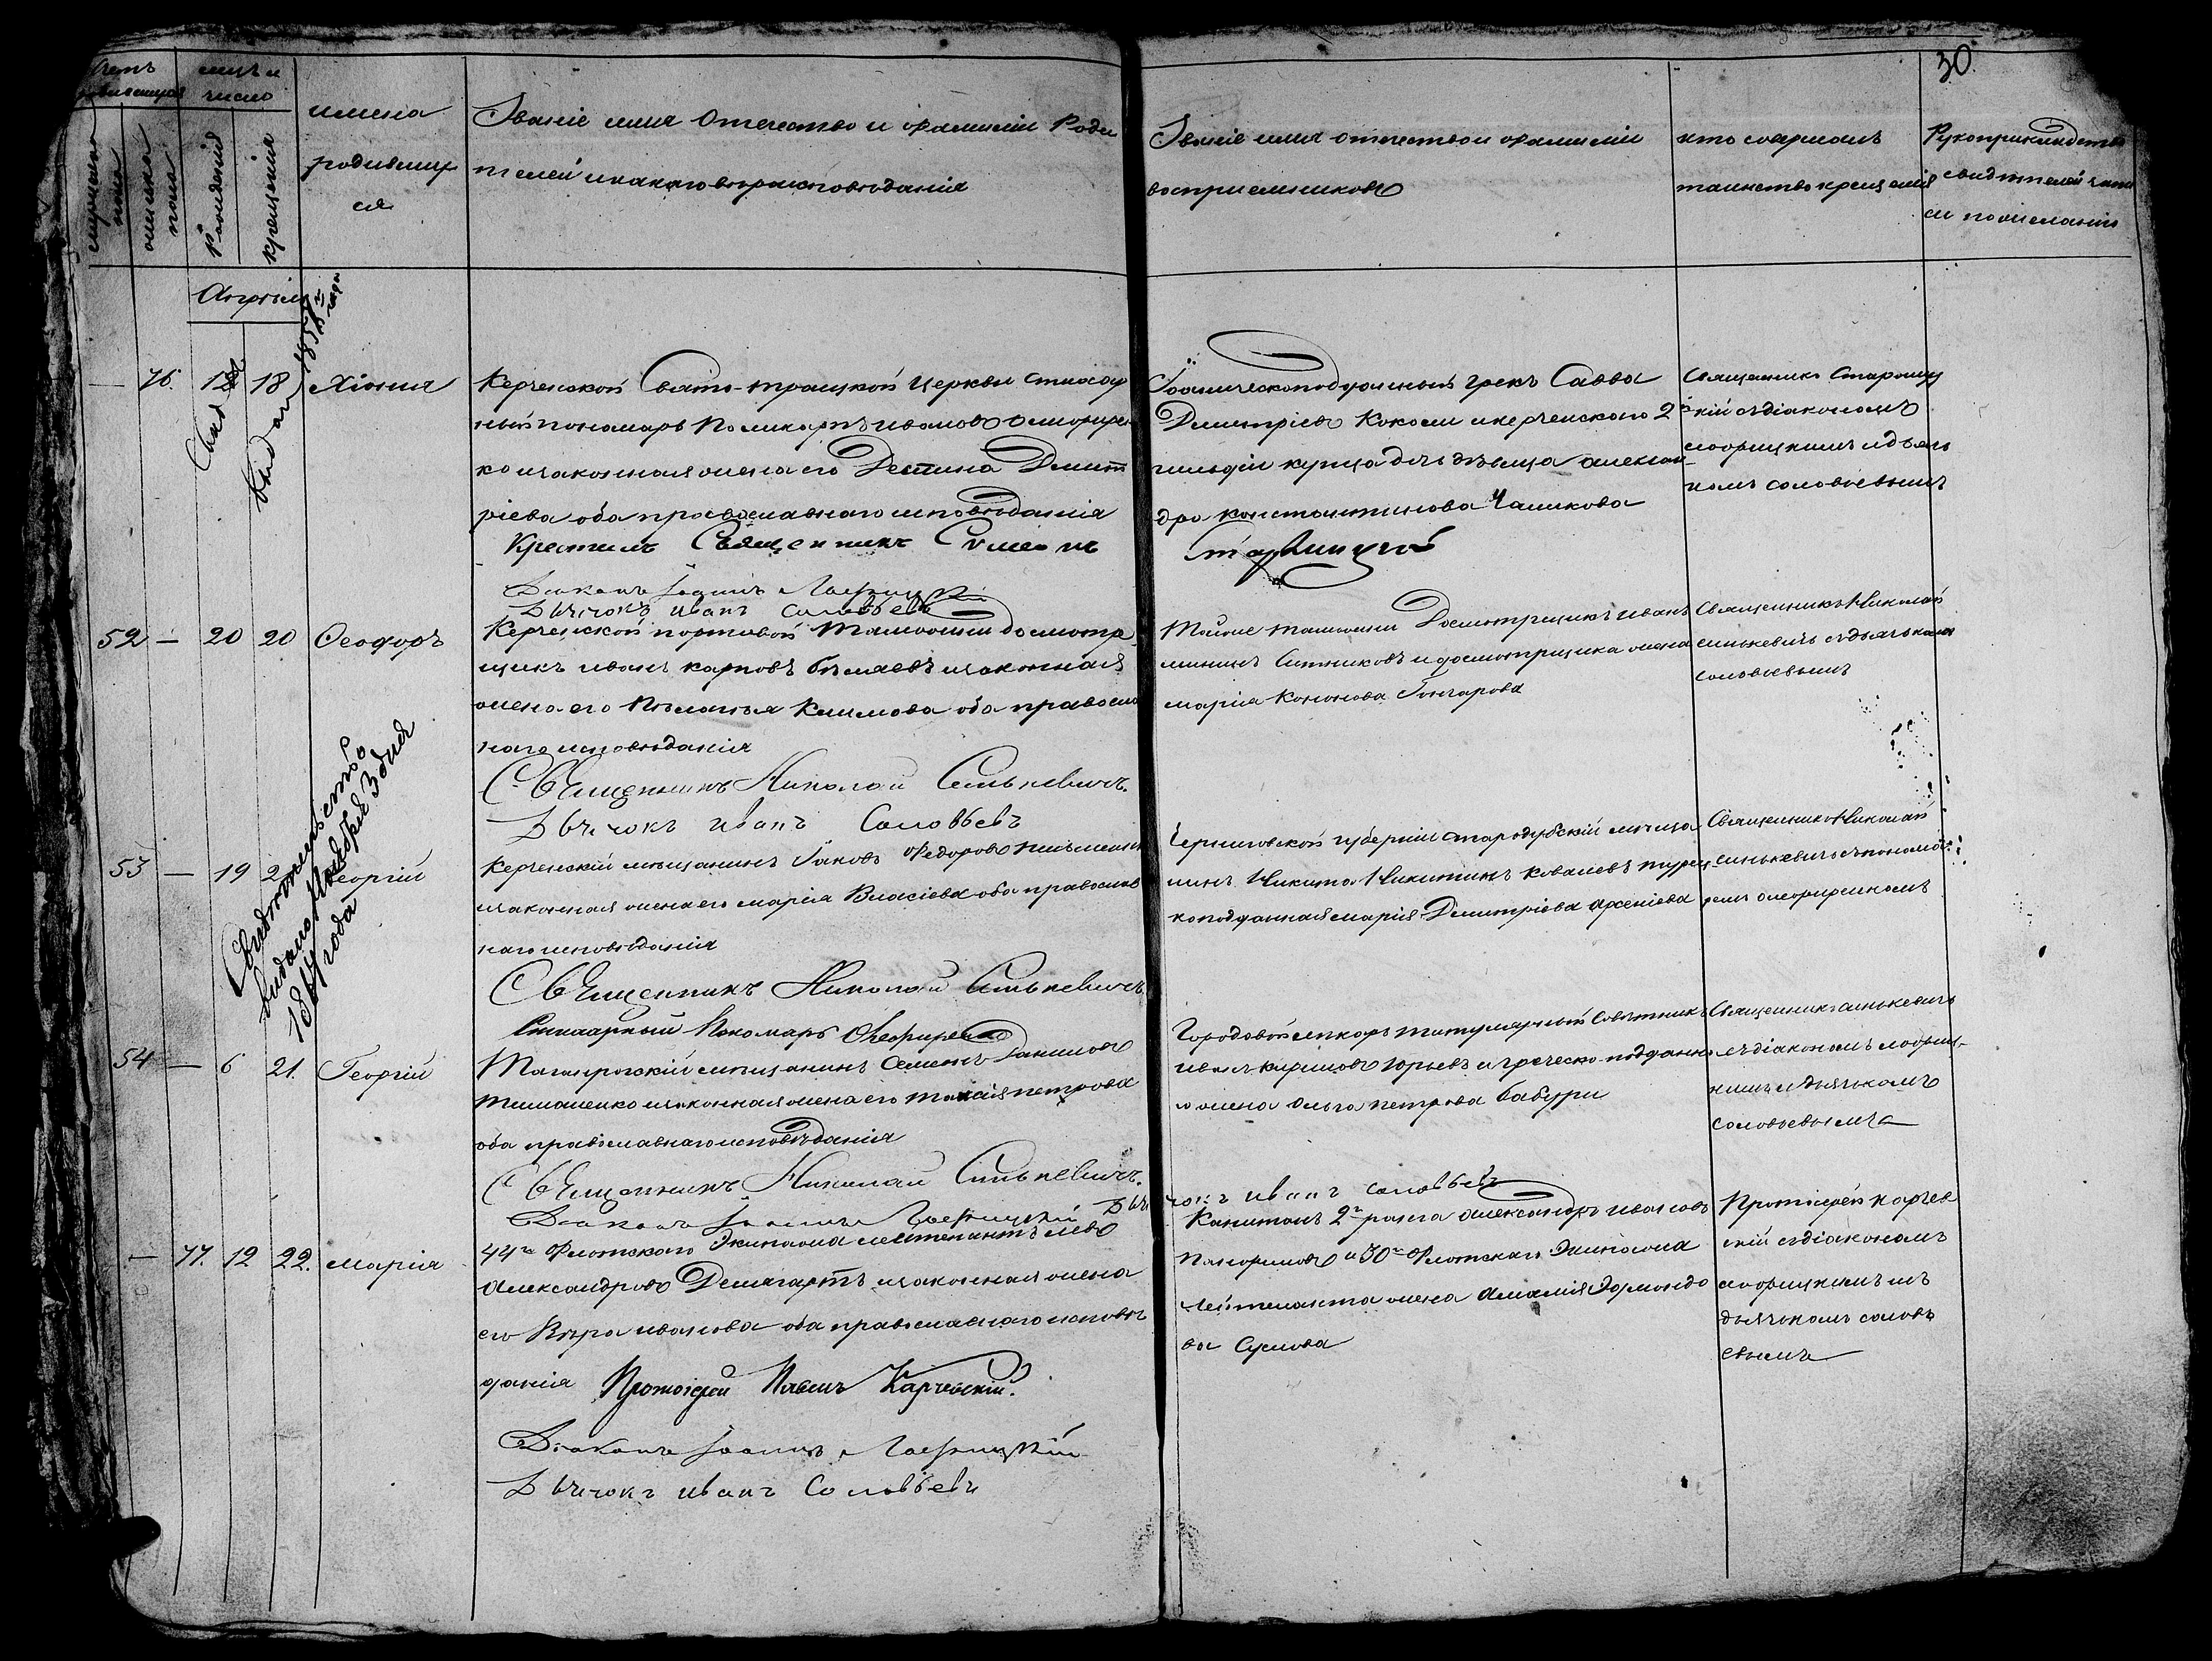 30.
Счетъ родившихся
мужеска пола
женска пола
мцъ и число
рожденія
крещенія
имена
родивших
ся
Званіе имя Отечество и фамиліи Роди
телей и какого вѣроисповѣданія
Званіе имя отечество и фамиліи
воспріемниковъ
кто совершалъ
таинство крещенія
Рукоприкладство
свидѣтелей записи
по желанію
Апрѣль
76. 12 18 Хіонія
Свид
выдан
Керченской Свято-Троицкой Церкви Стихар
ный пономарь Поликарпъ ивановъ
и законная жена его Деспина Димит
ріева оба православнаго исповѣданія
Іоаническоподданный грекъ Савва
Димитріевъ Коколи и керченскаго 2й
гильдіи купца дочь дѣвица алексан
дра константинова Чаликова
Священникъ Старицу
кій съ діакономъ
и дьяч
комъ соловьевымъ
Крестилъ Священникъ Симеонъ
Діаконъ Іоаннъ
Дьячокъ иванъ Соловьевъ
52 — 20 20 Ѳеодоръ
Керченской портовой таможни досмотр
щикъ иванъ карповъ бѣляевъ и законная
жена его Пелагія Климова оба правосла
наго исповѣданія
Тойже таможни Досмотрщикъ иванъ
мининъ Ситниковъ и досмотрщика жена
марія Кононова Гончарова
Священникъ Николай
синькевичъ съ дьячькомъ
соловьевымъ
Священникъ Николай Синькевичъ.
Дьячокъ иванъ Соловьевъ
53 — 19 2 Георгій
Свидѣтельство
выдано Ноября 3 дня
года
Керченскій мѣщанинъ Іаковъ Федоровъ
и законная жена его марія Власіева оба православ
наго исповѣданія
Черниговской губерніи стародубскій мѣща
нинъ Никита Никитинъ ковалевъ турец
коподданная марія Димитріева арсеніева
Священникъ Николай
синькевичъ съ понома
ремъ
Священникъ Николай Синькевичъ
Стихарный Пономарь
54 — 6 21. Георгій
Таганрогскій мѣщанинъ Семенъ Даниловъ
Тимашенко и законная жена его таисія петрова
оба православнаго исповѣданія
Городовой лекарь титулярный Совѣтникъ
иванъ Юрьевъ и греческо-подданна
го жена Ольга петрова бабури
Священникъ синькевичъ
съ діакономъ
кимъ и дьячькомъ
соловьевымъ
Священникъ Николай Синькевичъ.
Діаконъ Іоаннъ
Дьячокъ иванъ соловьевъ
— 77. 12 22. марія
44го Флотскаго Экипажа лейтенантъ левъ
Александровъ и законная жена
его Вѣра иванова оба православнаго исповѣ
данія
Капитанъ 2го ранга александръ ивановъ
Панфиловъ и 30го Флотскаго Экипажа
Лейтенанта жена Амалія Эдмондо
ва Суслова
Протоіерей карчев
скій съ діакономъ
дьячькомъ соловь
евымъ
Протоіерей Павелъ Карчевскій.
Діаконъ Іоаннъ
Дьячокъ иванъ Соловьевъ